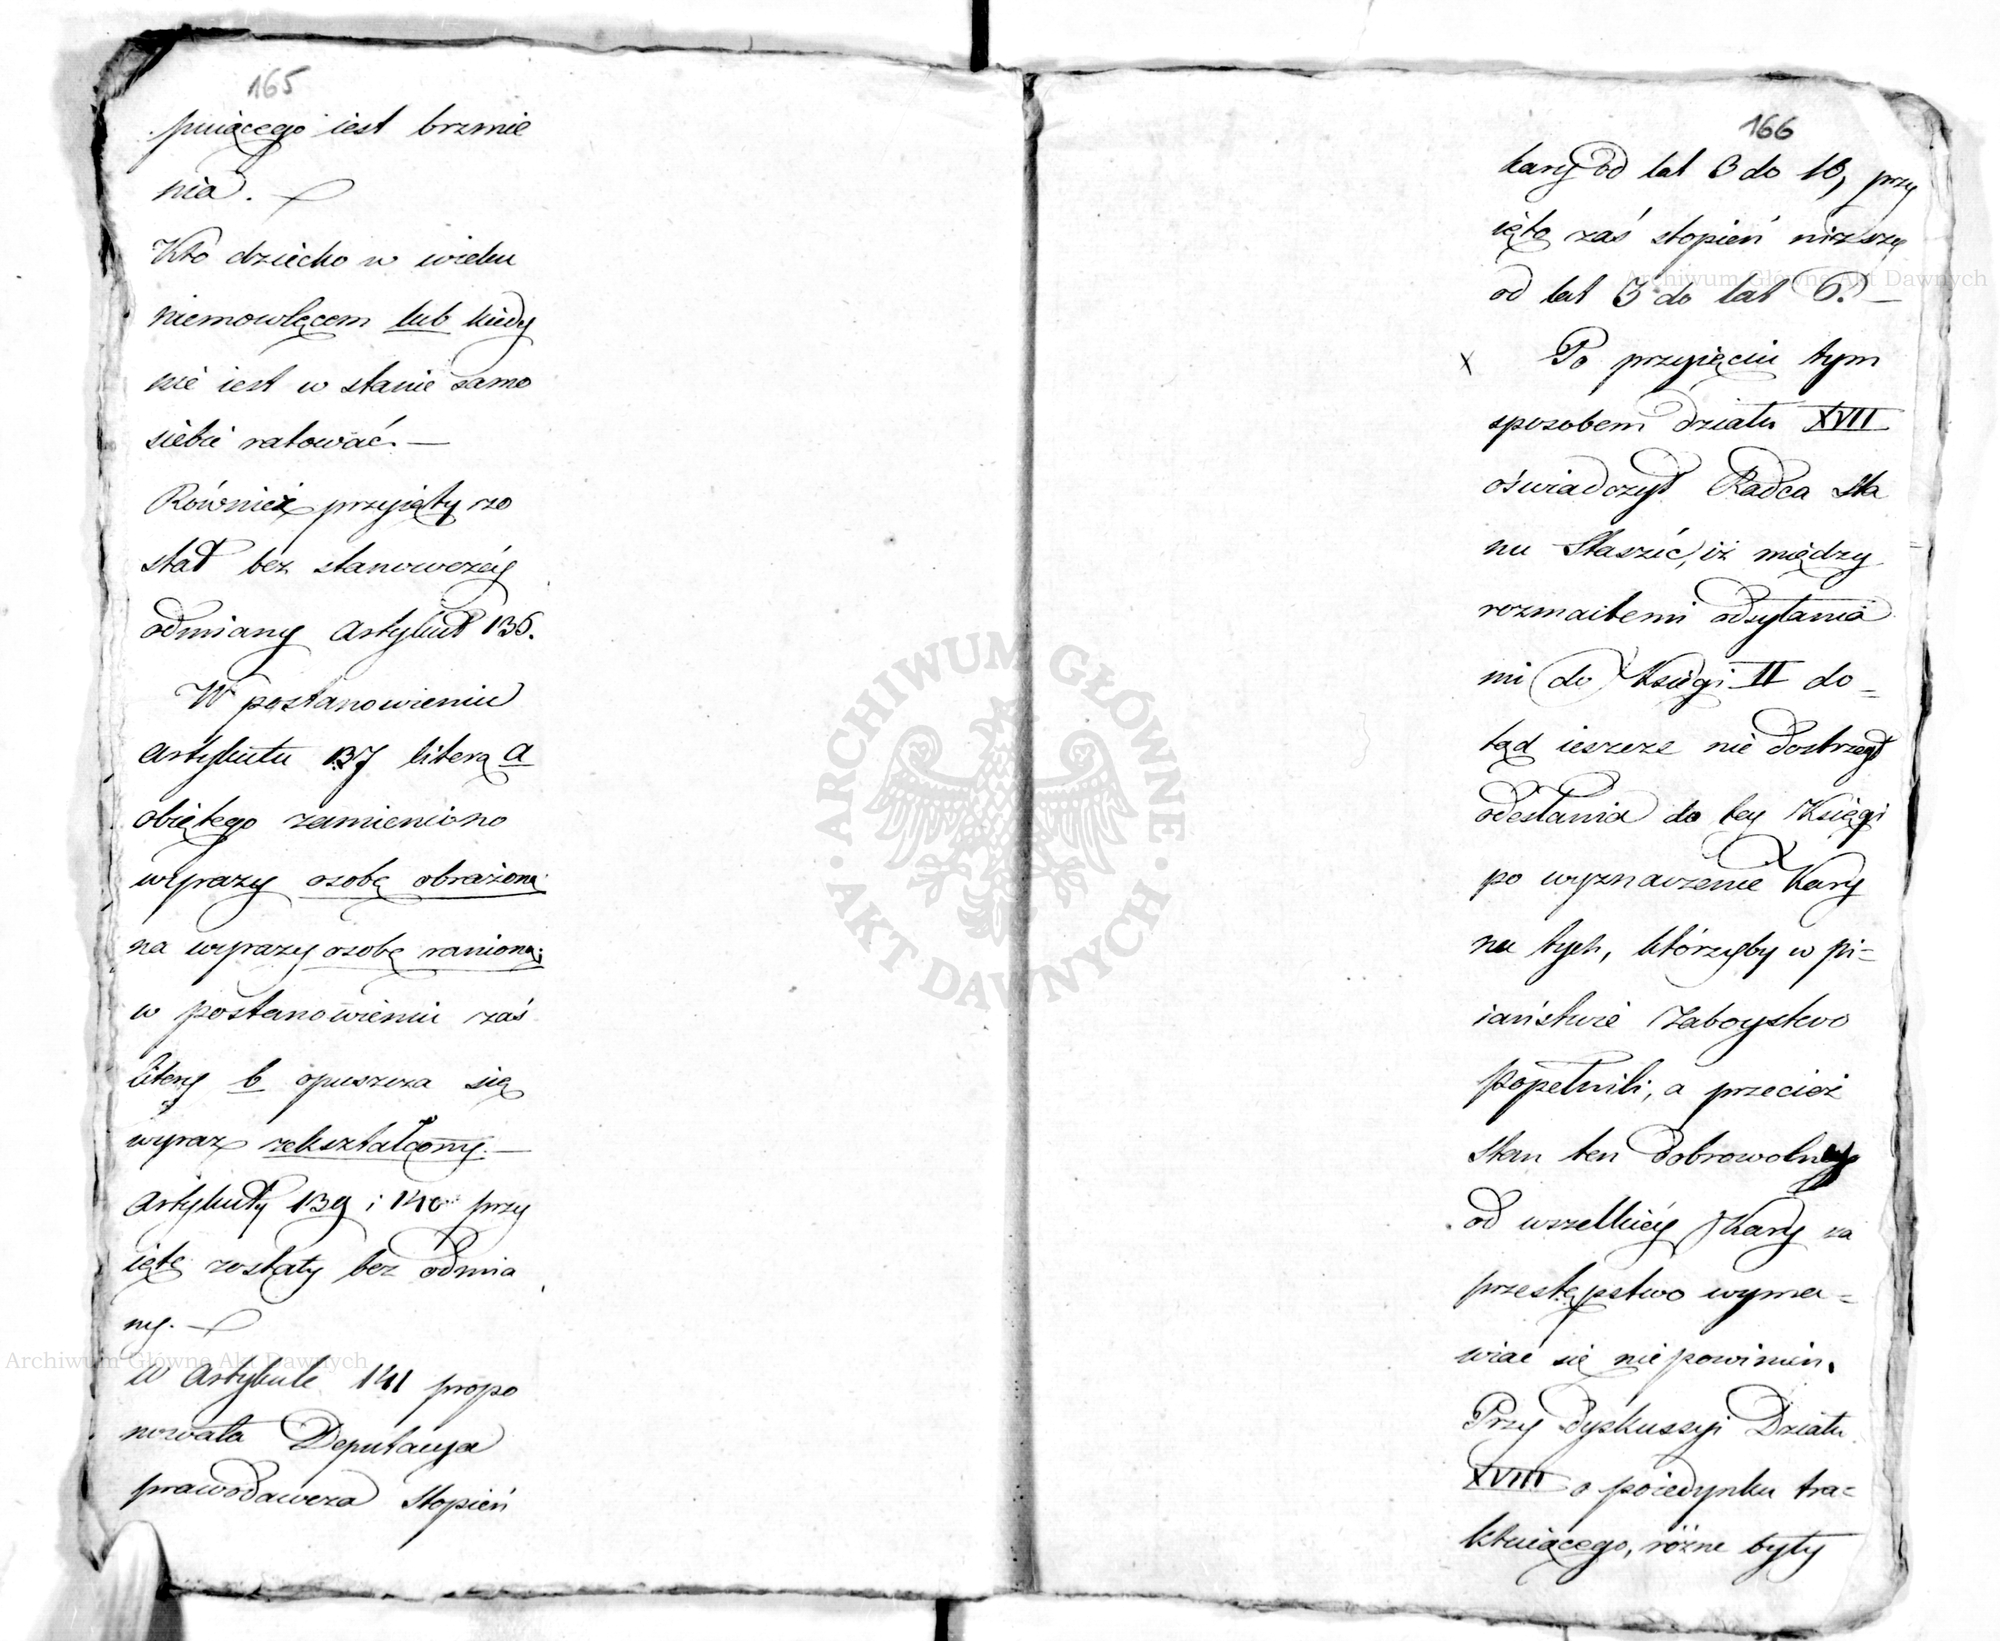 165
pniącego iest brzmie
nia. —
Kto dziecko w wieku
niemowlęcem lub kiedy
nie iest w stanie samo
siebie ratować. —
Również przyięty zo
stał bez stanowczéy
odmiany Artykuł 136.
W postanowieniu
Artykułu 137 literą a
obiętego zamieniono
wyrazy osobę obrażoną
na wyrazy osobę ranioną;
w postanowieniu zaś
litery b opuszcza się
wyraz zekształcony. —
Artykuły 139 i 140 przy
ięte zostały bez odmia
ny. —
W Artykule 141 propo
nowała Deputacya
prawodawcza stopień
166
kary od lat 3 do 10, przy
ięto zaś stopień niższy
od lat 3 do lat 6. —
x Po przyięciu tym
sposobem działu XVII
oświadczył Radca Sta
nu Staszic, iż między
rozmaitemi odsyłania
mi do Księgi II do=
tąd ieszcze nie dostrzegł
odesłania do tey Księgi
po wyznaczenie Kary
na tych, którzyby w pi=
iaństwie zaboystwo
popełnili, a przecież
stan ten dobrowolny
od wszelkiéy Kary za
przestępstwo wyma=
wiać się nie powinien.
Przy dyskussyi Działu
XVIII o poiedynku tra=
ktuiącego, różne były
Archiwum Główne Akt Dawnych
Archiwum Główne Akt Dawnych
ARCHIWUM GŁÓWNE · AKT DAWNYCH ·